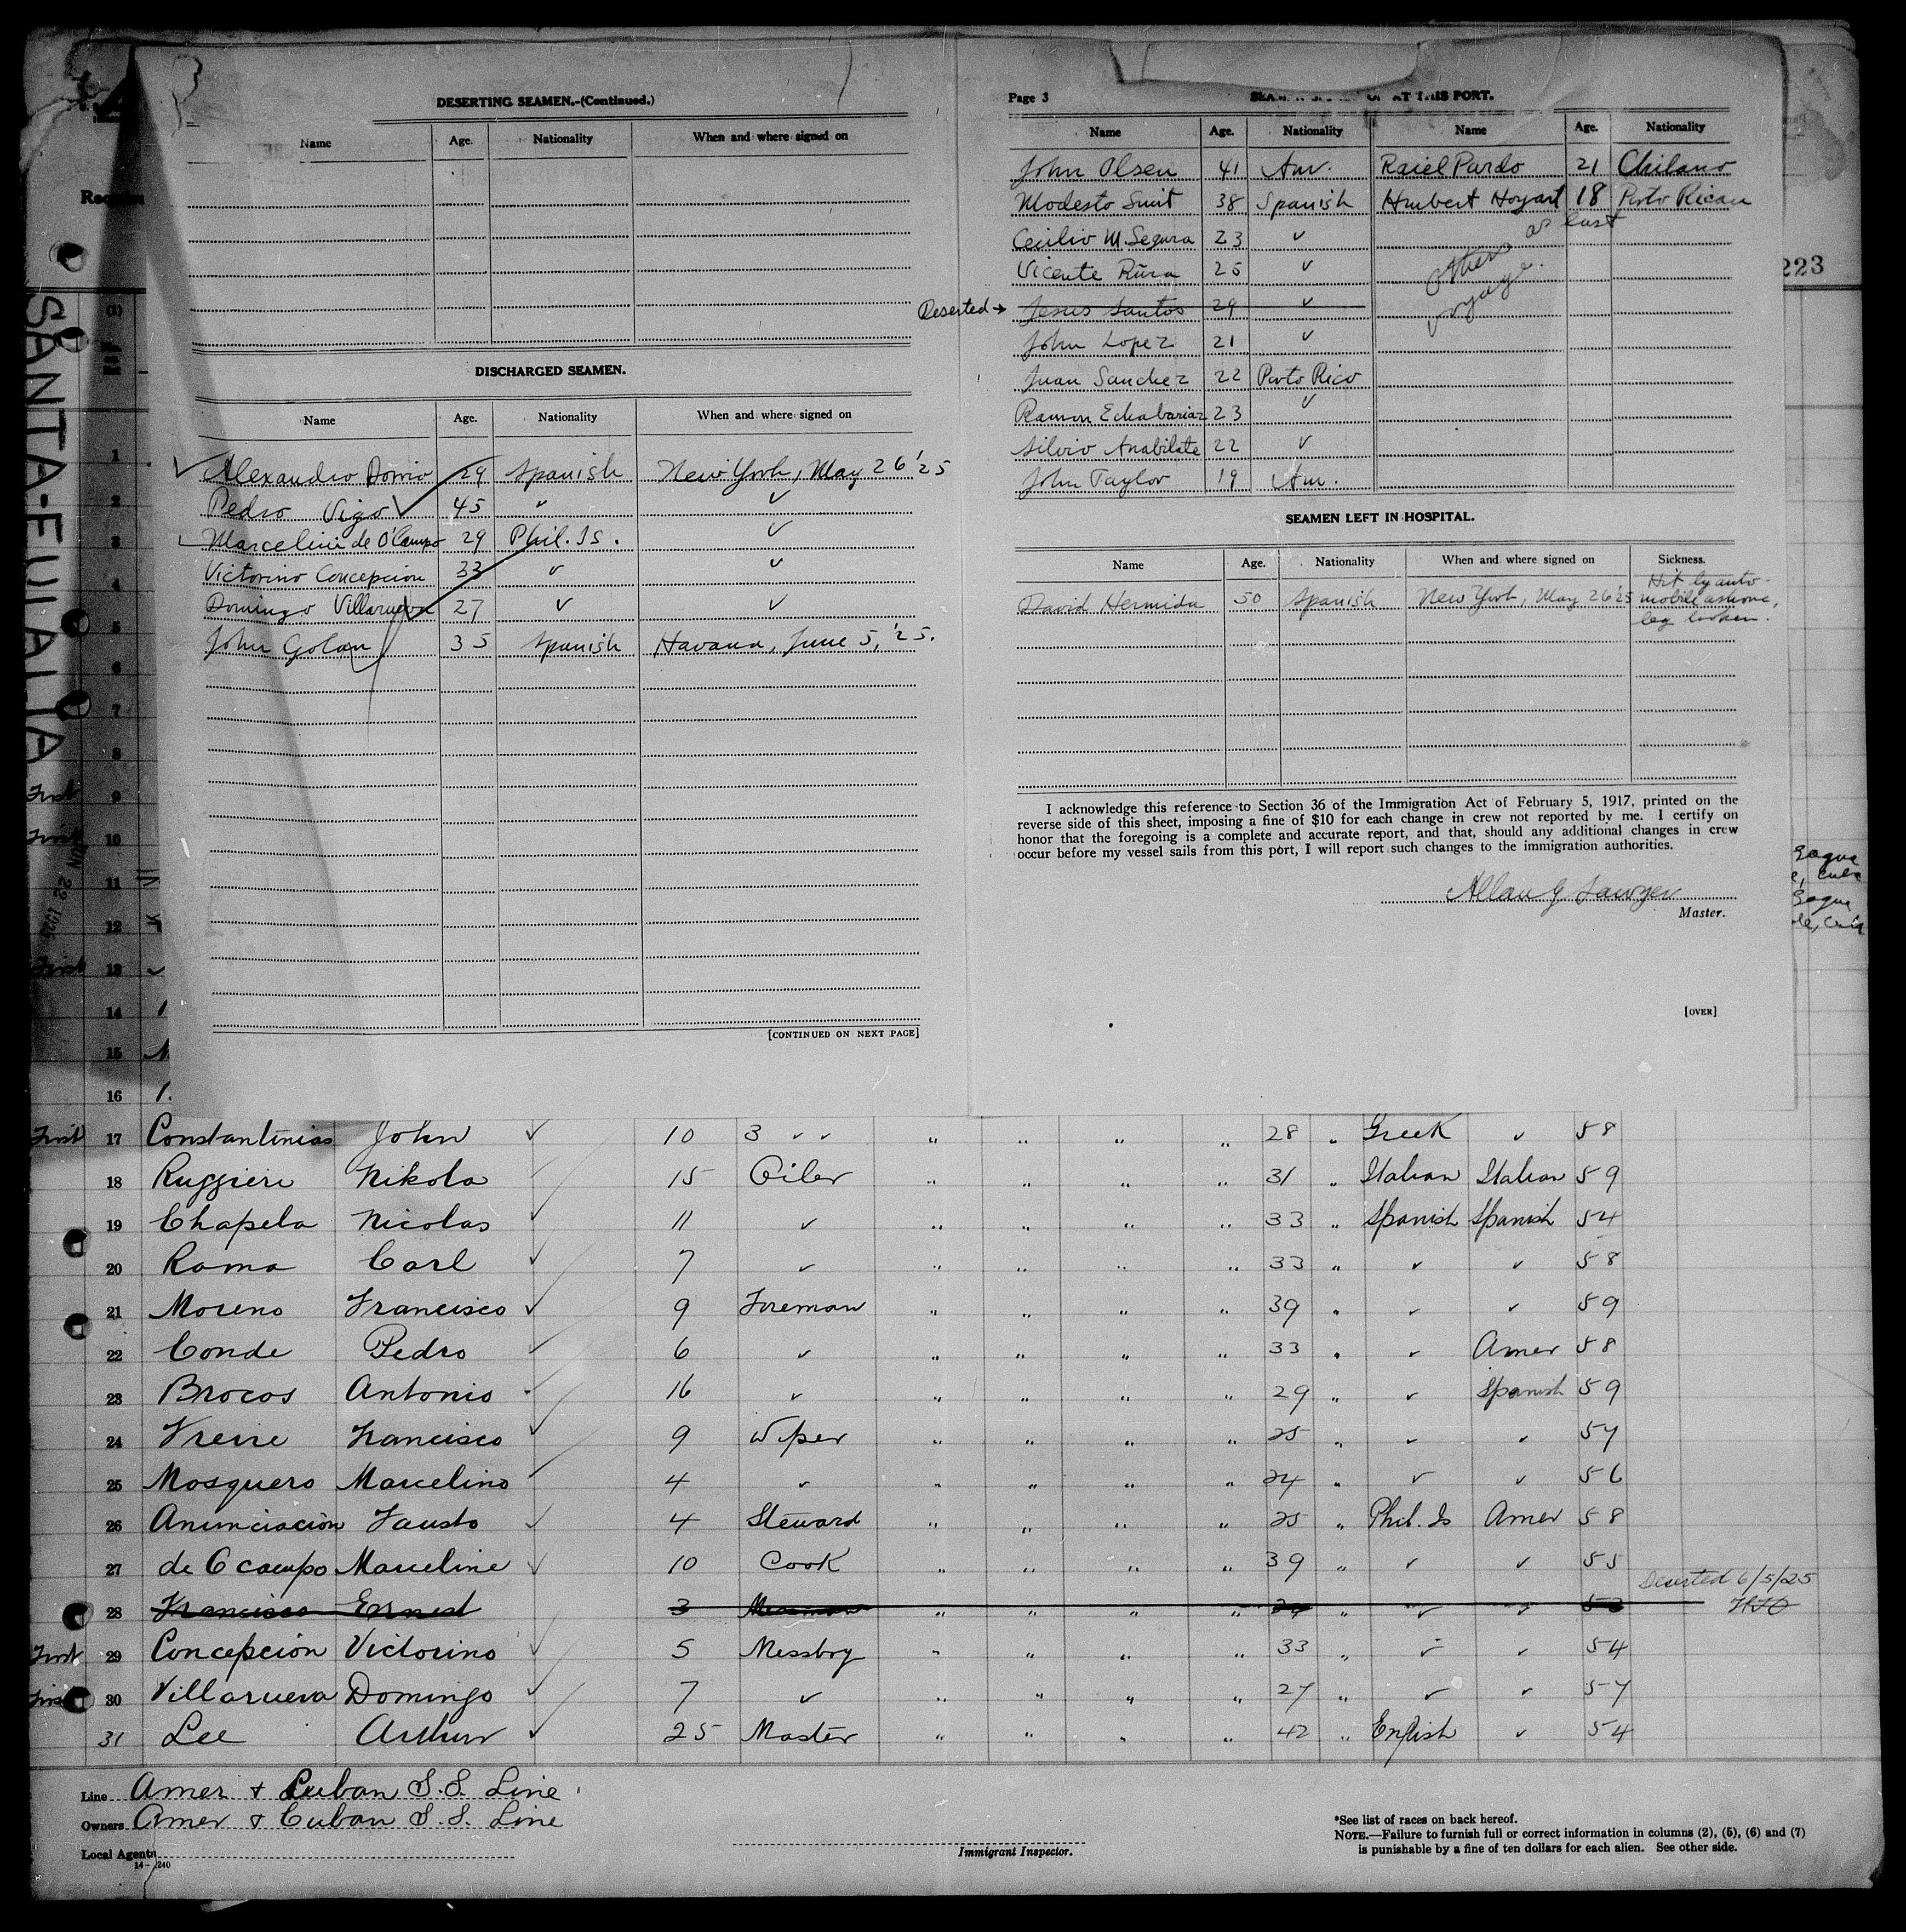 DESERTING SEAMEN.-(Continued.)
Name Age. Nationality When and where signed on
DISCHARGED SEAMEN.
Name Age. Nationality When and where signed on
Alexandro 29 Spanish New York, May 26 '25
Pedro Vigo 45 " ✓
Marcelini de O'Campo 29 Phil. Is. ✓
Victorino Concepcion 33 ✓ ✓
Domingo Villarueva 27 ✓ ✓
John Golan 35 Spanish Havana, June 5, '25.
[CONTINUED ON NEXT PAGE]
Page 3 AT THIS PORT.
Name Age. Nationality Name Age. Nationality
John Olsen 41 Am. Raiel Pardo 21 Chilano
Modesto Smit 38 Spanish Humbert Hoyart 18 Porto Rican
Cecilio M. Segura 23 ✓
Vicente 25 ✓
Others as last voyage.
Deserted → Jesus Santos 29 ✓
John Lopez 21 ✓
Juan Sanchez 22 Porto Rico
Ramon Echabariaz 23 ✓
Silvio Anabilate 22 ✓
John Taylor 19 Am.
SEAMEN LEFT IN HOSPITAL.
Name Age. Nationality When and where signed on Sickness.
David Hermida 50 Spanish New York, May 26 '25 Hit by auto-
mobile ashore,
leg broken.
I acknowledge this reference to Section 36 of the Immigration Act of February 5, 1917, printed on the
reverse side of this sheet, imposing a fine of $10 for each change in crew not reported by me. I certify on
honor that the foregoing is a complete and accurate report, and that, should any additional changes in crew
occur before my vessel sails from this port, I will report such changes to the immigration authorities.
Allan G Sawyer
Master.
[OVER]
223
SANTA-EULALIA
JUN 22 1925
1
2
3
4
5
6
7
8
First 9
First 10
11
12
First 13
14
15
16
First 17 Constantinias John ✓ 10 3 ✓ ✓ " " " " 28 " Greek ✓ 58
18 Ruggieri Nikola 15 Oiler " " " " 31 " Italian Italian 59
19 Chapela Nicolas ✓ 11 ✓ " " " " 33 " Spanish Spanish 54
20 Roma Carl ✓ 7 ✓ " " " " 33 " ✓ ✓ 58
21 Moreno Francisco ✓ 9 Fireman " " " " 39 " ✓ ✓ 59
22 Conde Pedro ✓ 6 ✓ " " " " 33 " ✓ Amer 58
23 Brocos Antonio ✓ 16 ✓ " " " " 29 " ✓ Spanish 59
24 Freire Francisco ✓ 9 Wiper " " " " 25 " ✓ ✓ 57
25 Mosquero Marcelino ✓ 4 ✓ " " " " 24 " ✓ ✓ 56
26 Anunciacion Fausto ✓ 4 Steward " " " " 25 " Phil. Is Amer 58
27 de Ocampo Marceline ✓ 10 Cook " " " " 39 " ✓ ✓ 55
28 Francisco Ernest 3 Messman " " " " " ✓ ✓ Deserted 6/5/25
First 29 Concepcion Victorino ✓ 5 Messboy " " " " 33 " ✓ ✓ 54
First 30 Villarueva Domingo ✓ 7 ✓ " " " " 27 " ✓ ✓ 57
31 Lee Arthur ✓ 25 Master " " " " 42 " English ✓ 54
Line Amer & Cuban S.S. Line
Owners Amer & Cuban S.S. Line
Local Agents
14-1240
Immigrant Inspector.
*See list of races on back hereof.
NOTE.—Failure to furnish full or correct information in columns (2), (5), (6) and (7)
is punishable by a fine of ten dollars for each alien. See other side.